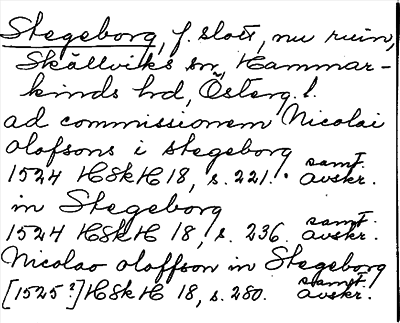 Stegeborg, f. slott, nu ruin,
Skällviks sn, Hammar-
kinds hd, Österg. l.
ad commissionem Nicolai
olofsons i stegeborg
1524 HSkH 18, s. 221. samt. avskr.
in Stegeborg
1524 HSkH 18, s. 236 samt. avskr.
Nicolao oloffson in Stegeborg
[1525?] HSkH 18, s. 280. samt. avskr.